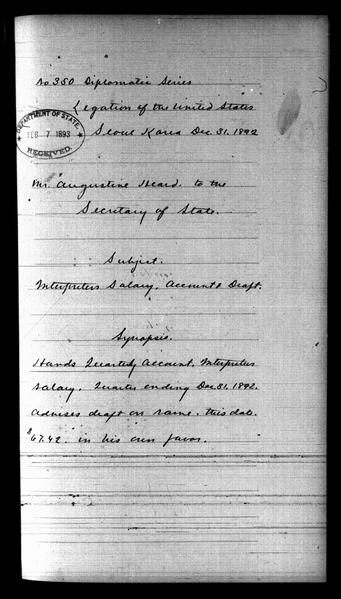 No 350 Diplomatic Series
Legation of the United States
Seoul Korea Dec 31. 1892
DEPARTMENT OF STATE
FEB 7 1893
RECEIVED.
Mr. Augustine Heard. to the
Secretary of State.
Subject.
Interpreters Salary. Account & Draft.
Synopsis.
Hands Quarterly Account. Interpreters
salary. Quarter ending Dec. 31. 1892.
advises draft on same. this date.
$67.42. in his own favor.